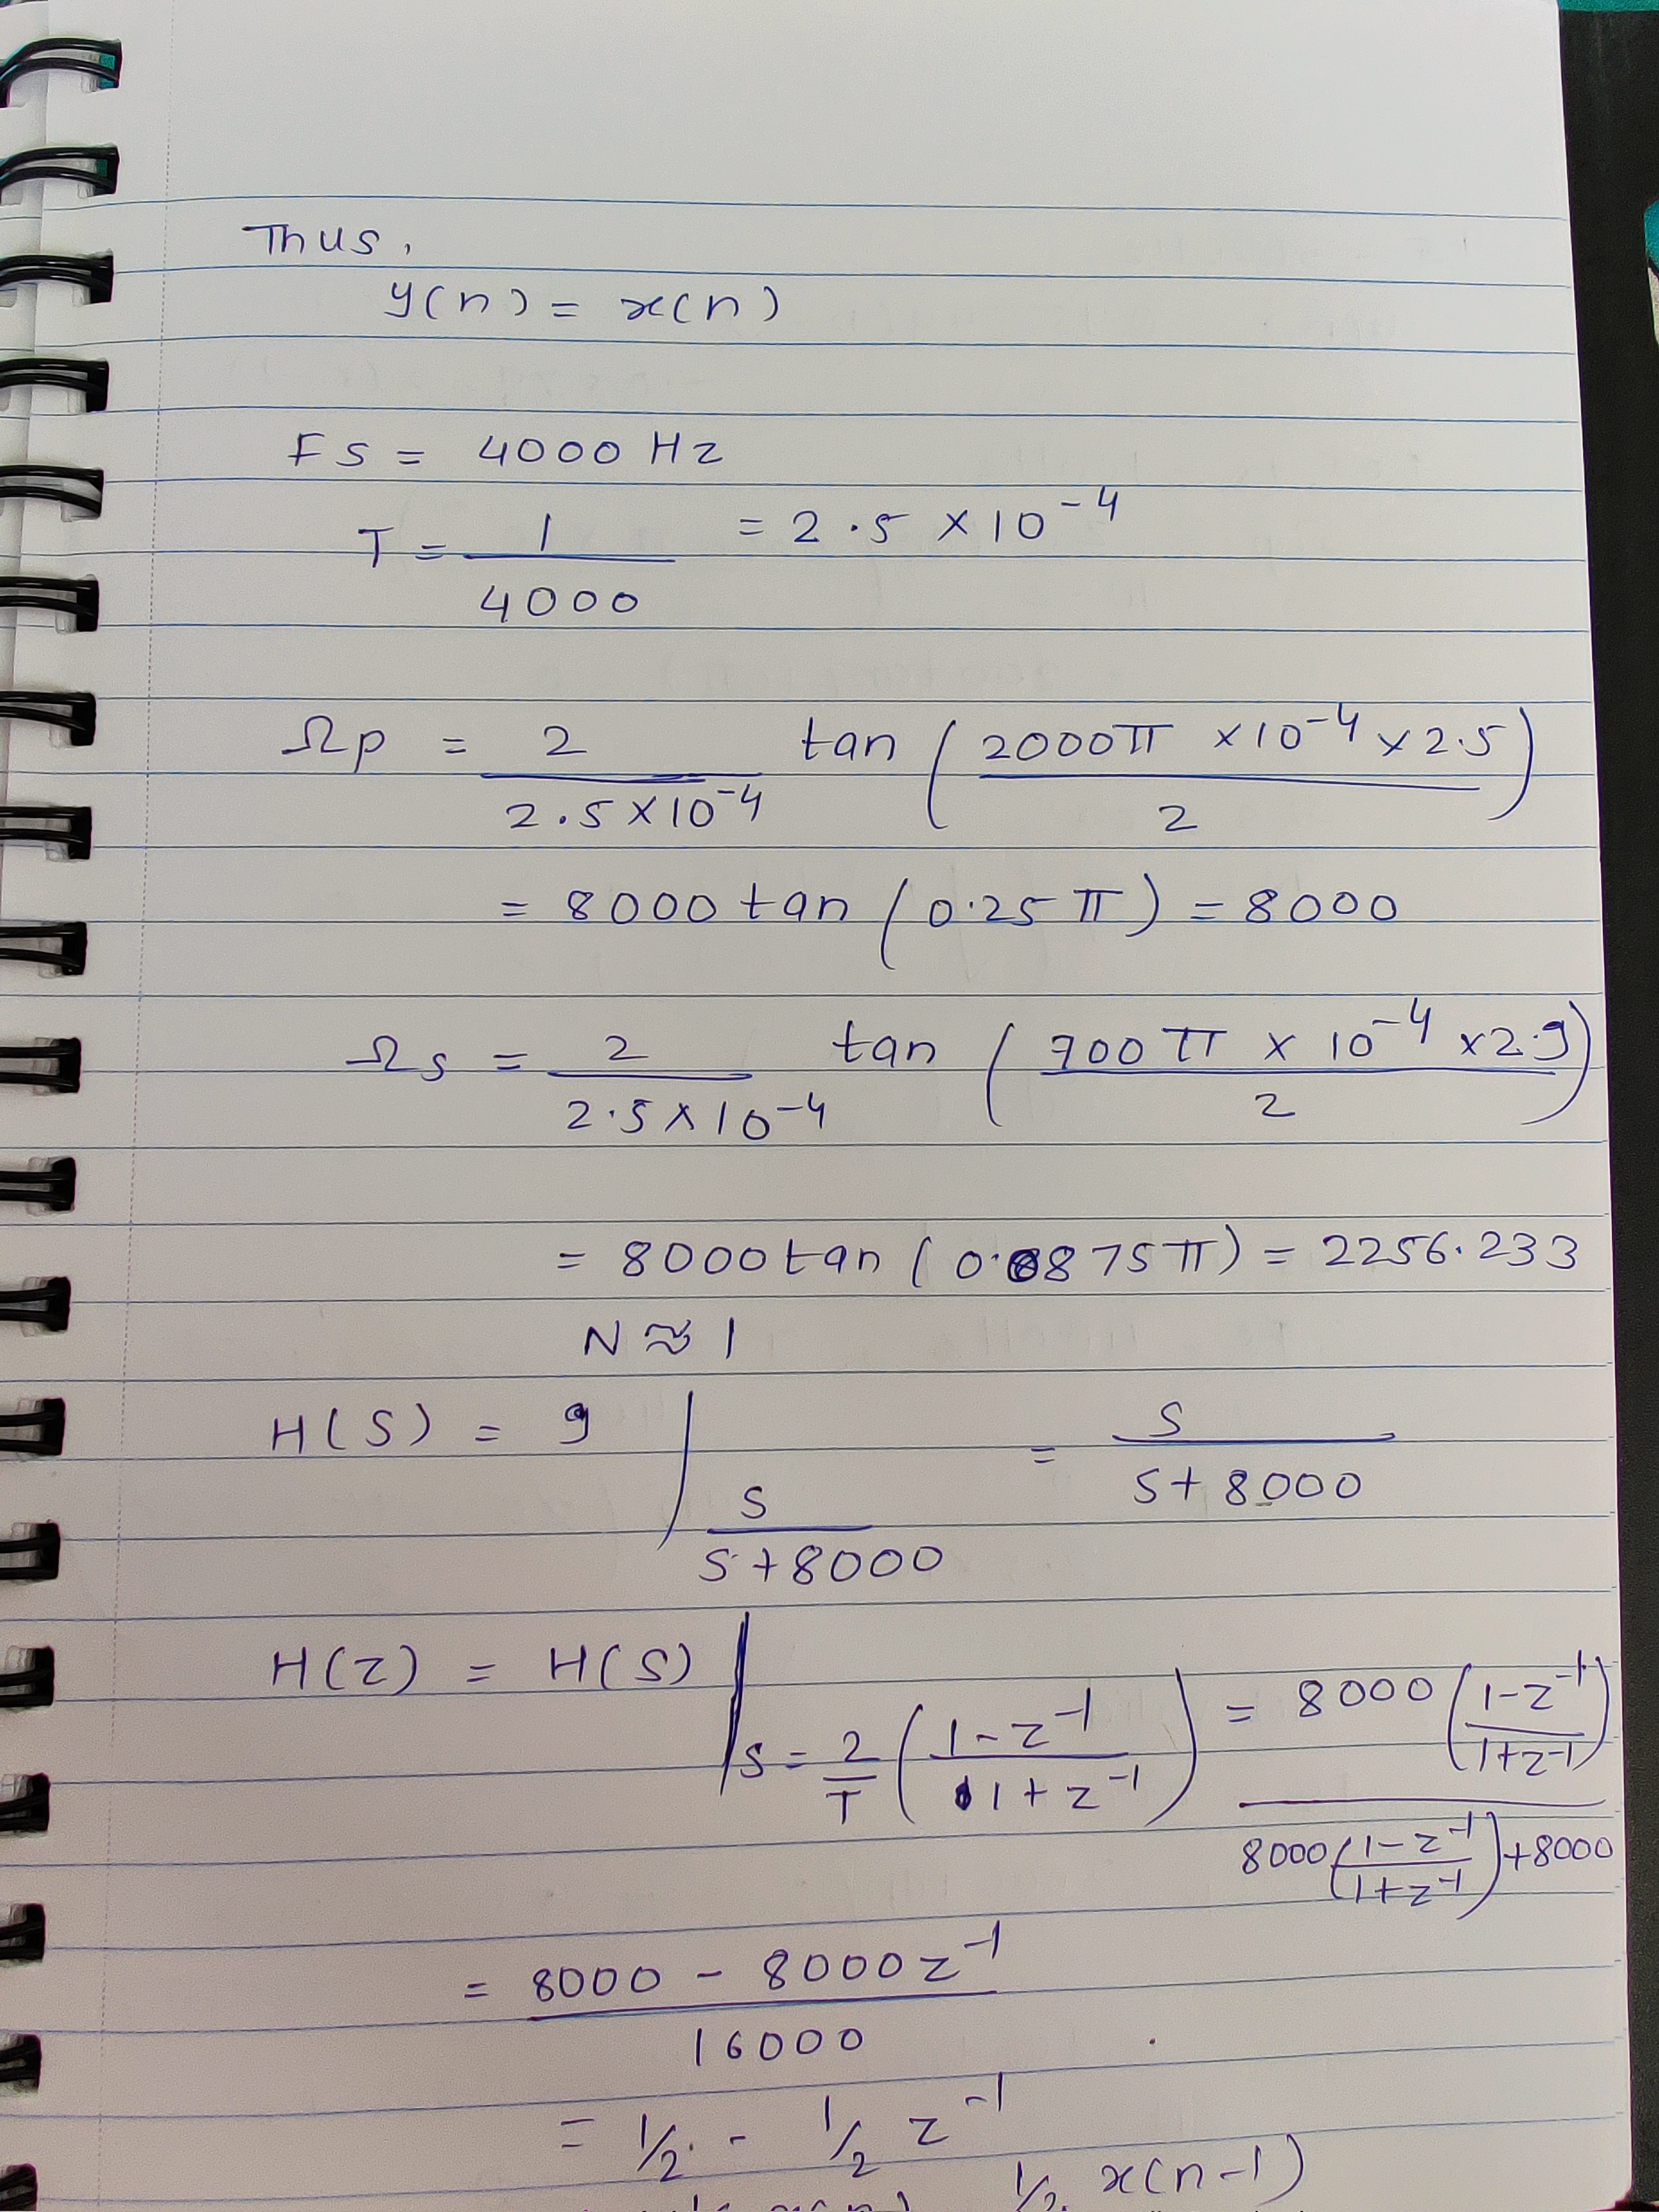 Thus,
y(n) = x(n)
Fs = 4000 Hz
T = 1/4000 = 2.5 × 10^-4
Ωp = 2/(2.5×10^-4) tan (2000π ×10^-4 ×2.5 / 2)
= 8000 tan (0.25π) = 8000
Ωs = 2/(2.5×10^-4) tan (700π × 10^-4 ×2.5 / 2)
= 8000 tan (0.0875π) = 2256.233
N ≈ 1
H(S) = 9 | S/(S+8000) = S/(S+8000)
H(z) = H(S) | S = 2/T ((1-z^-1)/(1+z^-1)) = 8000 ((1-z^-1)/(1+z^-1)) / (8000 ((1-z^-1)/(1+z^-1)) + 8000)
= (8000 - 8000z^-1)/16000
= 1/2 - 1/2 z^-1
1/2 x(n-1)